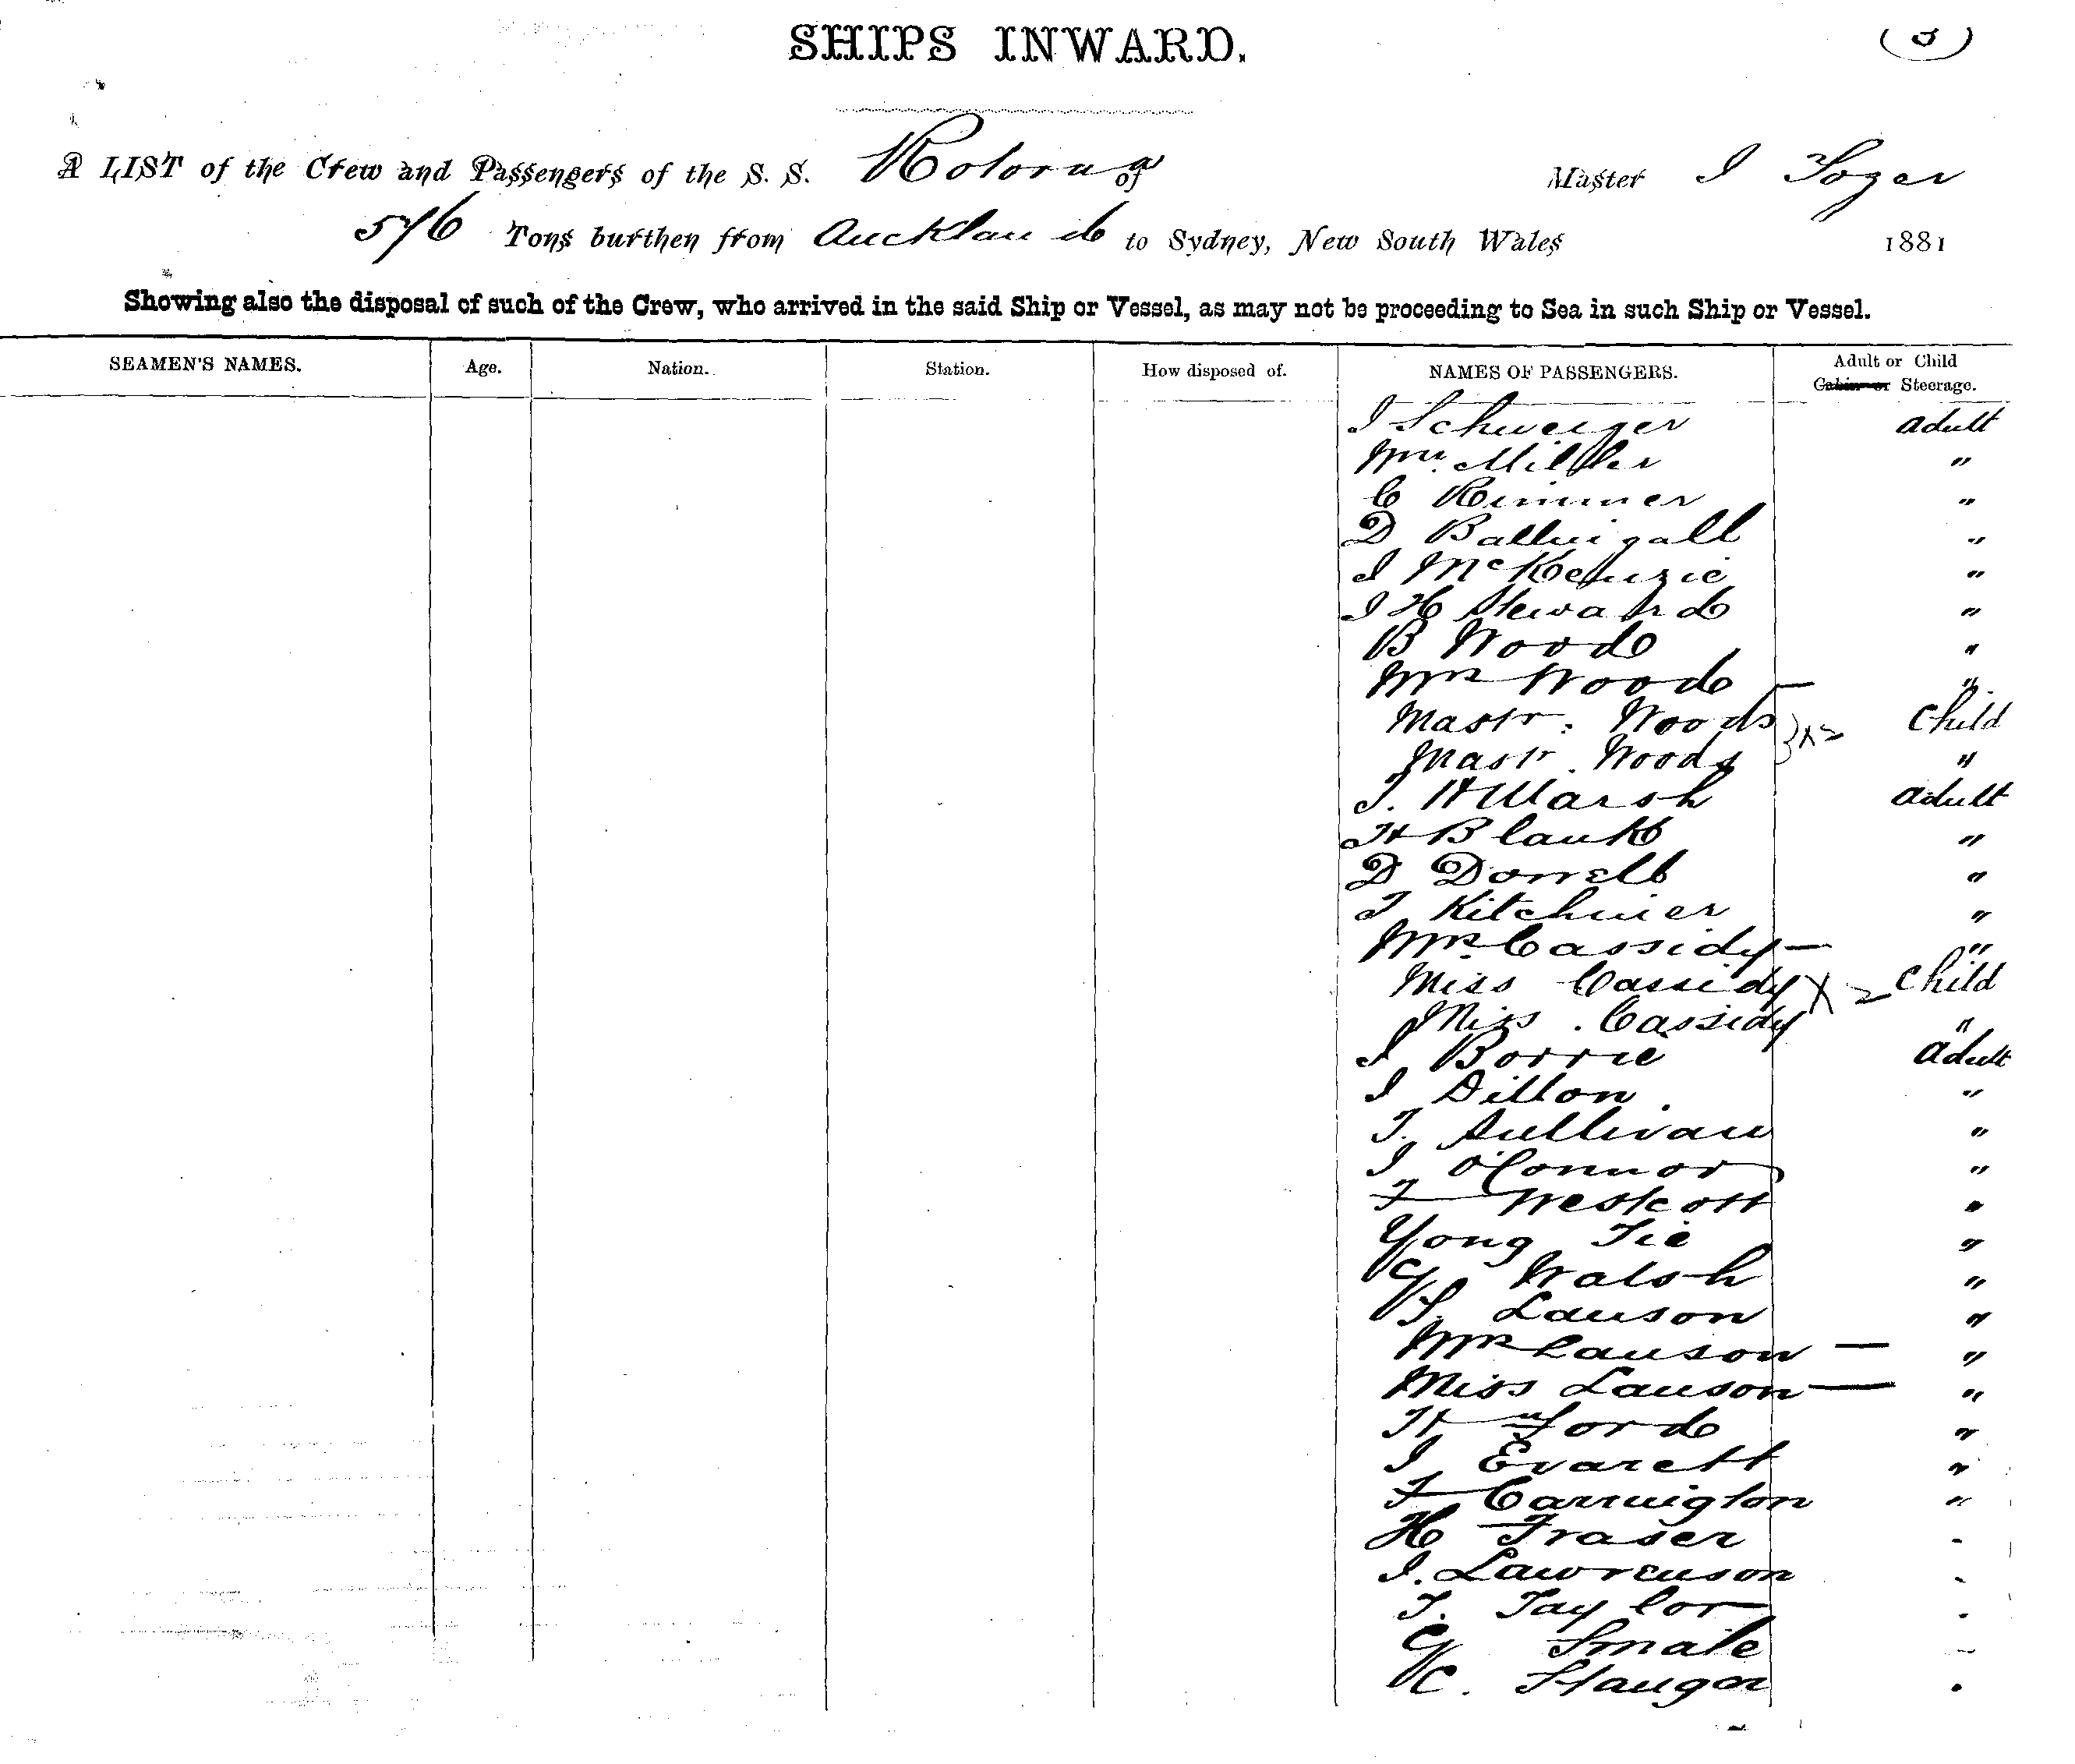 SHIPS INWARD.
(3)
A LIST of the Crew and Passengers of the S. S. Rotorua of Master I Sozer
576 Tons burthen from Auckland to Sydney, New South Wales 1881
Showing also the disposal of such of the Crew, who arrived in the said Ship or Vessel, as may not be proceeding to Sea in such Ship or Vessel.
SEAMEN'S NAMES. Age. Nation. Station. How disposed of. NAMES OF PASSENGERS. Adult or Child
Cabin or Steerage.
J Schweiger adult
Wm. Miller "
C Rimmer "
D Ballingall "
J McKenzie "
J H Steward "
B Wood "
Mrs Wood — "
Mastr. Woods } x2 Child
Mastr. Woods "
T. H Marsh adult
H Blank "
D Dorrell "
J Kitchiner "
Mrs. Cassidy — "
Miss Cassidy X 2 Child
Miss. Cassidy "
J Borrie adult
J Dillon "
T. Sullivan "
J O'Connor "
F Westcott "
Yong Tie "
G Walsh "
S. Lauson "
Mrs Lauson — "
Miss Lauson — "
H Ford "
J Everett "
F Carrington "
H Fraser -
J. Lawrenson -
T. Taylor .
G Smale -
C. Stanger .